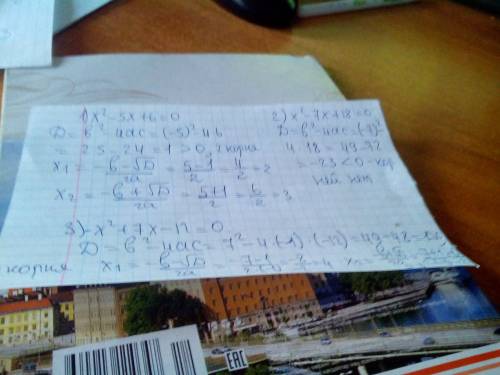 1) x²-5x+6=0
D=b²-4ac=(-5)²-4·6
=25-24=1>0, 2 корня
x₁=(-b-√D)/2a=(5-1)/2=4/2=2
x₂=(-b+√D)/2a=(5+1)/2=6/2=3
2) x²-7x+18=0
D=b²-4ac=(-7)²
4·18=49-72
=-23<0 - кор
ней нет
3) -x²+7x-12=0
D=b²-4ac=7²-4·(-1)·(-12)=49-48=
корня x₁=
EAC